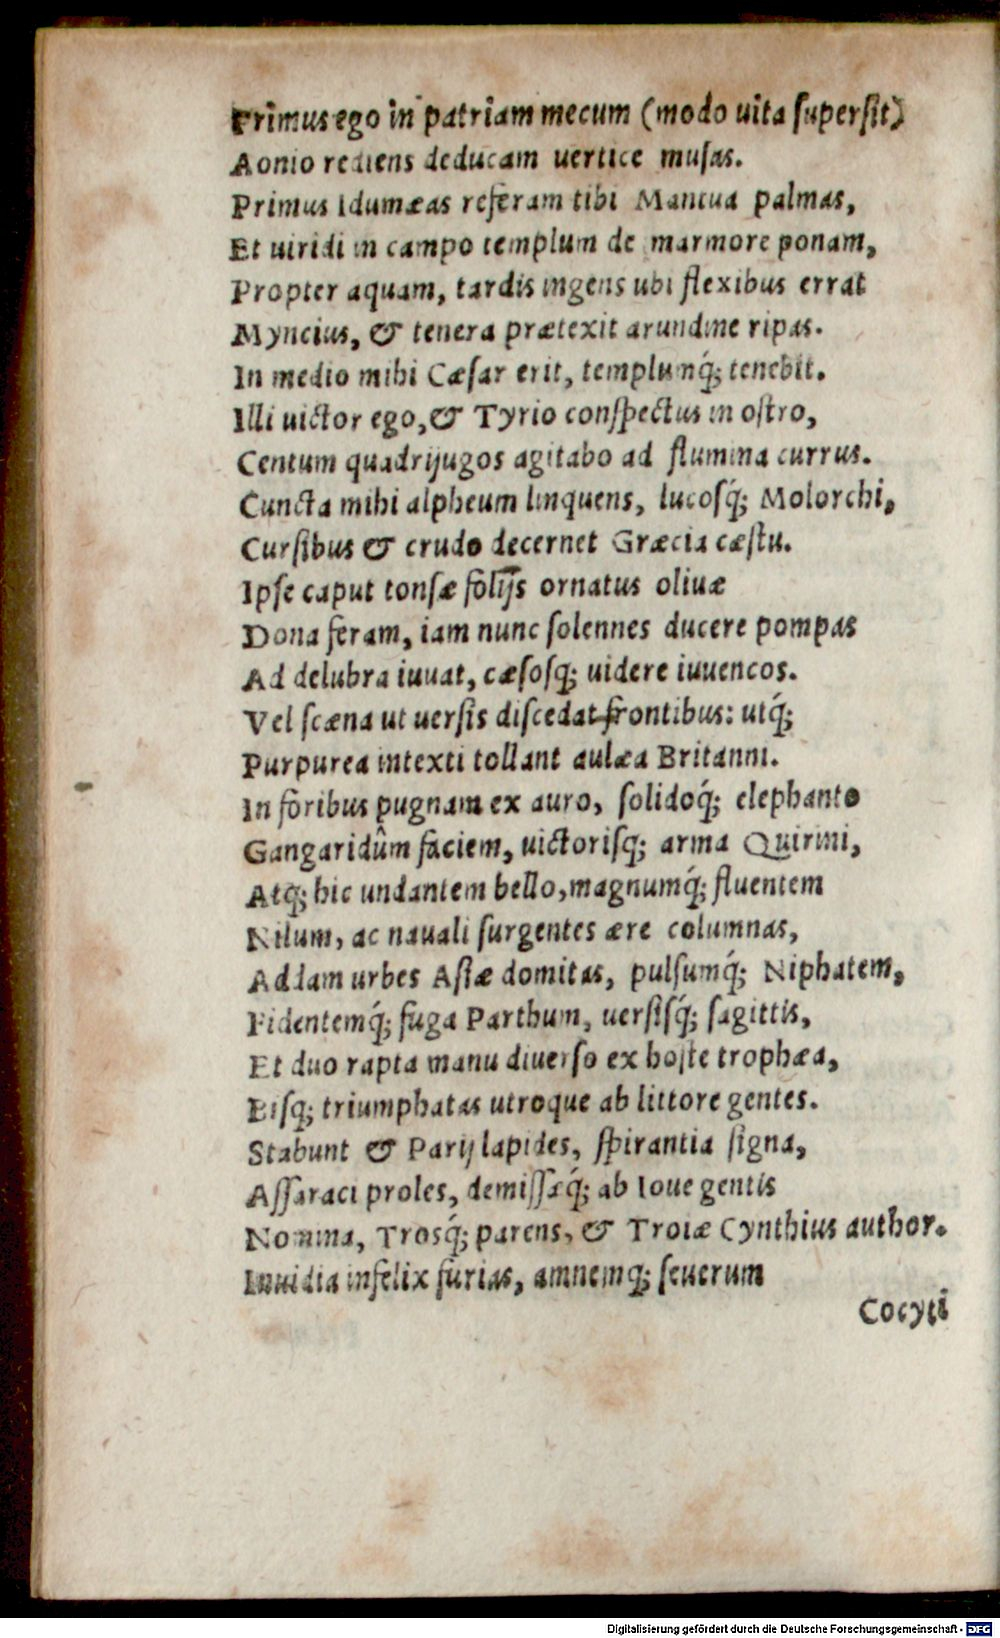 Primus ego in patriam mecum (modo uita ſuperſit)
Aonio rediens deducam uertice muſas.
Primus Idumæas referam tibi Mantua palmas,
Et uiridi in campo templum de marmore ponam,
Propter aquam, tardis ingens ubi flexibus errat
Myncius, & tenera prætexit arundine ripas.
In medio mihi Cæſar erit, templumq́; tenebit.
Illi uictor ego, & Tyrio conſpectus in oſtro,
Centum quadrijugos agitabo ad flumina currus.
Cuncta mihi alpheum linquens, lucosq́; Molorchi,
Curſibus & crudo decernet Græcia cæſtu.
Ipſe caput tonſæ folijs ornatus oliuæ
Dona feram, iam nunc ſolennes ducere pompas
Ad delubra iuuat, cæſosq; uidere iuuencos.
Vel ſcæna ut uerſis diſcedat frontibus: utq́;
Purpurea intexti tollant aulæa Britanni.
In foribus pugnam ex auro, ſolidoq́; elephanto
Gangaridûm faciem, uictoriſq; arma Quirini,
Atq; hic undantem bello, magnumq́; fluentem
Nilum, ac nauali ſurgentes ære columnas,
Addam urbes Aſiæ domitas, pulſumq́; Niphatem,
Fidentemq́; fuga Parthum, uerſiſq́; ſagittis,
Et duo rapta manu diuerſo ex hoſte trophæa,
Biſq; triumphatas utroque ab littore gentes.
Stabunt & Parij lapides, ſpirantia ſigna,
Aſſaraci proles, demiſſæq́; ab Ioue gentis
Nomina, Trosq́; parens, & Troiæ Cynthius author.
Inuidia infelix furias, amnemq; ſeuerum
Cocyti
Digitalisierung gefördert durch die Deutsche Forschungsgemeinschaft - DFG